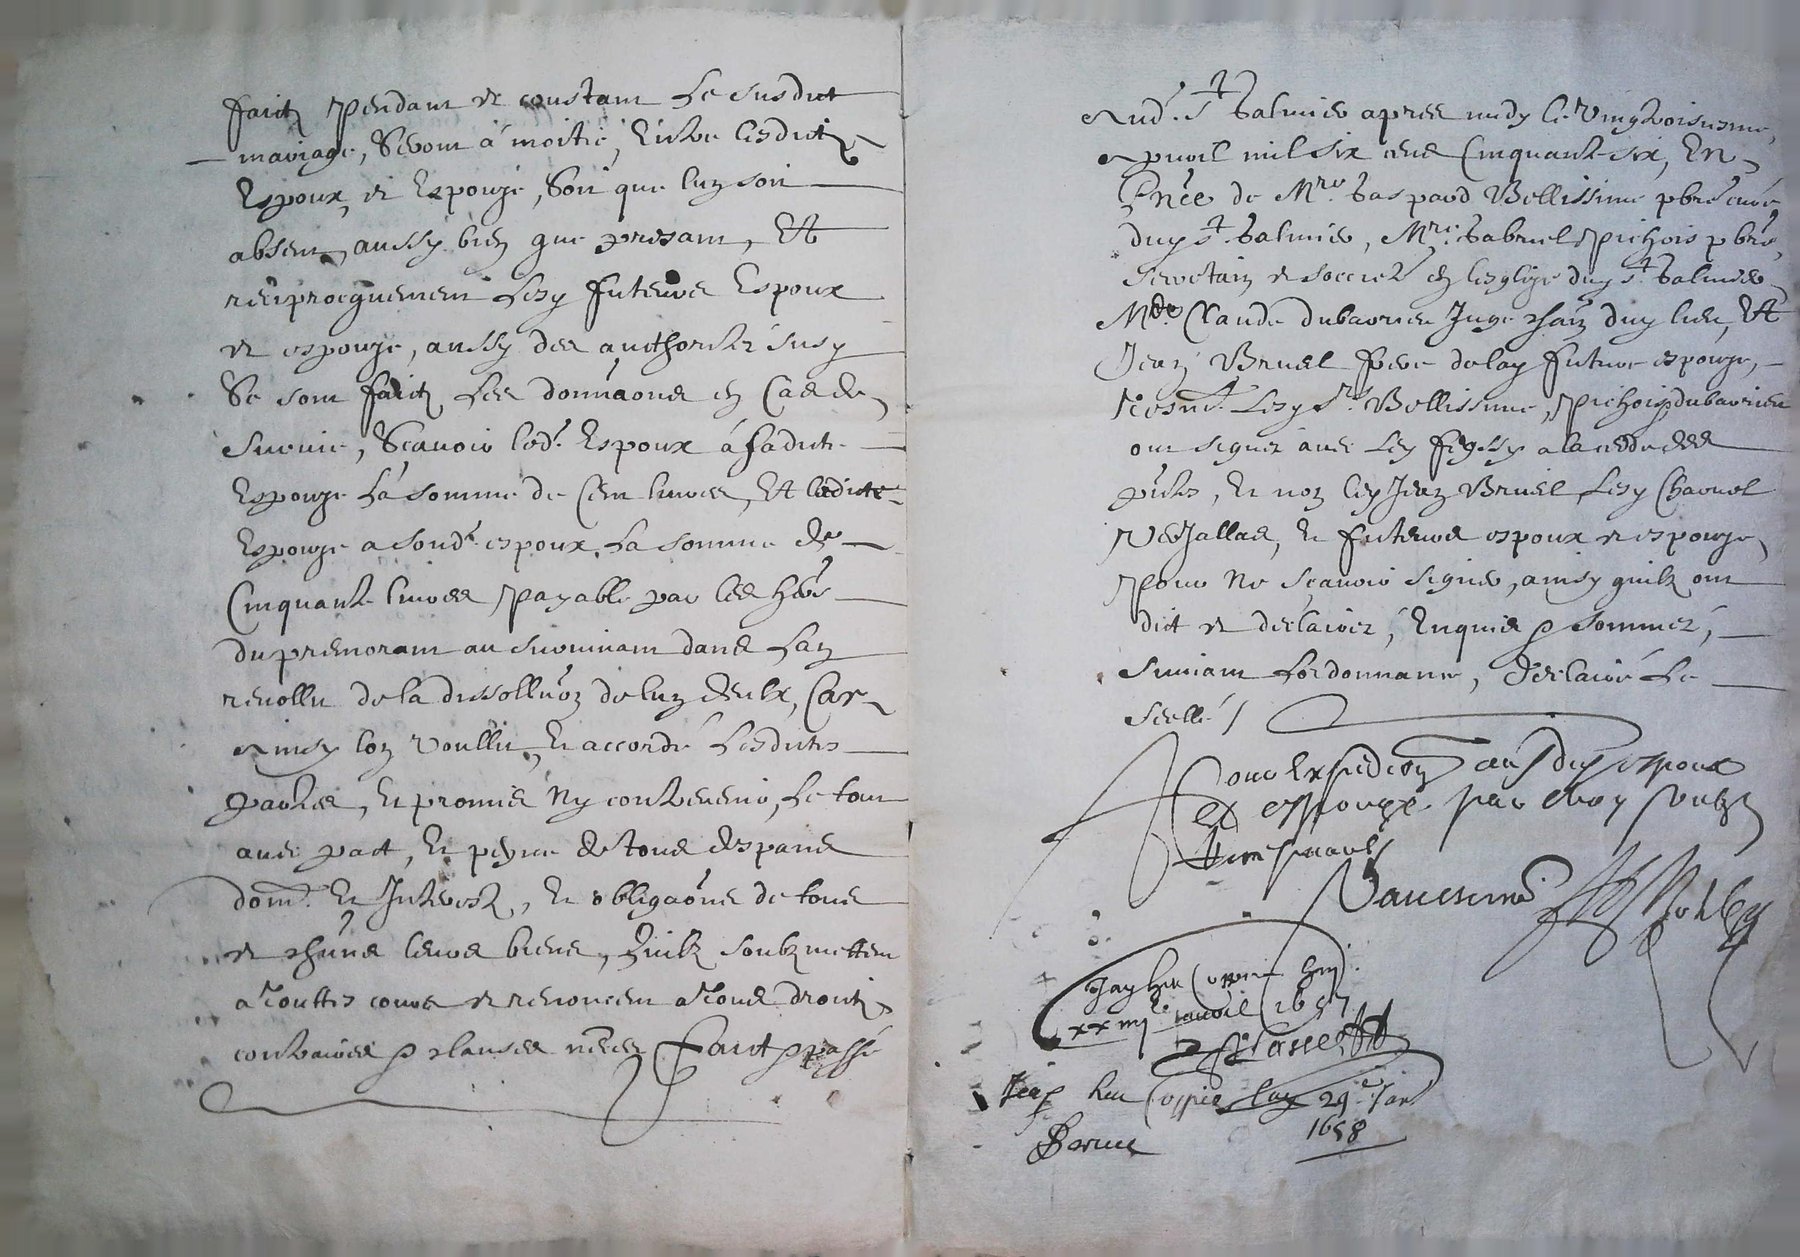 faictz pendant et constant le susdict
mariage, seront a moitié, entre lesdictz
espoux et espouze, soit que luz soit
absent, aussy bien que presant, Et
reciprocquement lesy futeurs espoux
et espouze, aussy des aucthorités susy
se sont faictz les donnaons en cas de
survie, scavoir led. espoux a sadicte
espouze la somme de Cent livres, Et ladicte
espouze a sond. espoux la somme de
Cinquante livres payable par les hers
du premorant au survivant dans l'an
revollu de la dissolluon de luz deulx, Car
ainsy lon voullu, et accordé lesdites
parties, et promis ny contrevenir, le tout
avec pact, et peyne de tous despans
dom. et Interestz, et obligaons de tous
et chuns leurs biens, quilz soubzmettent
a touttes cours et renoncent a tous droictz
contraires p clauses neces faict p passé
aud. St Galmier apres midy le vingtroisiesme
apvril mil six cens Cinquante six, En
pnce de Mre Gaspard Vellissime pbre curé
duy St Galmier, Mre Gabriel Pichois pbre
secretain et soccier en lesglize duy St Galmier
Me Claude dubavrier Juge chain duy lieu, Et
Jean Bruel frere de lay future espouze,
tesmt. lesy srs Vellissime, Pichois p dubavrier
ont signez avec ley à la cedde des
pntes, et non ley Jean Bruel lesy Charvel
Vejallas, et futeurs espoux et espouze,
pour ne scavoir signer, ainsy quilz ont
dict et declairez, enquis p sommez,
suivant lordonnance, declairé le
scellé /
Pour expedion ausd duy espoux
et espouze par moy soubz
J'ay heu Coppie
xxiiije avril 1657
Jeay heu Coppie lay 29e Jan
1658